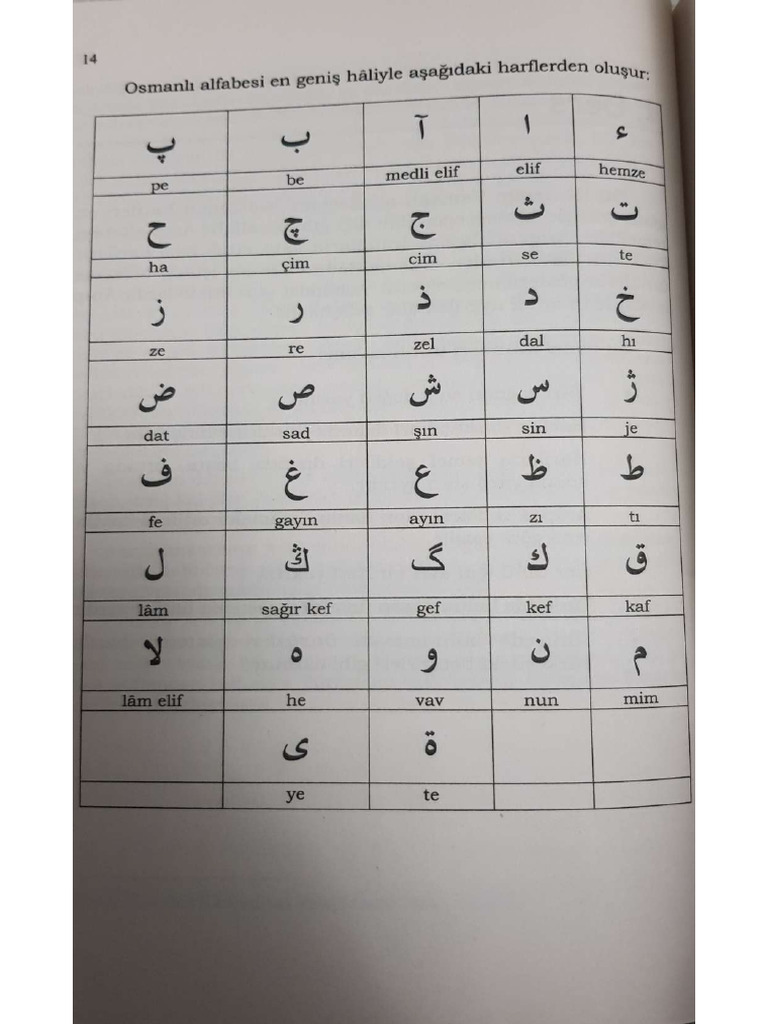 14
Osmanlı alfabesi en geniş hâliyle aşağıdaki harflerden oluşur:
پ ب آ ا ء
pe be medli elif elif hemze
ح چ ج ث ت
ha çim cim se te
ز ر ذ د خ
ze re zel dal hı
ض ص ش س ژ
dat sad şın sin je
ف غ ع ظ ط
fe gayın ayın zı tı
ل ڭ گ ك ق
lâm sağır kef gef kef kaf
لا ه و ن م
lâm elif he vav nun mim
ى ة
ye te